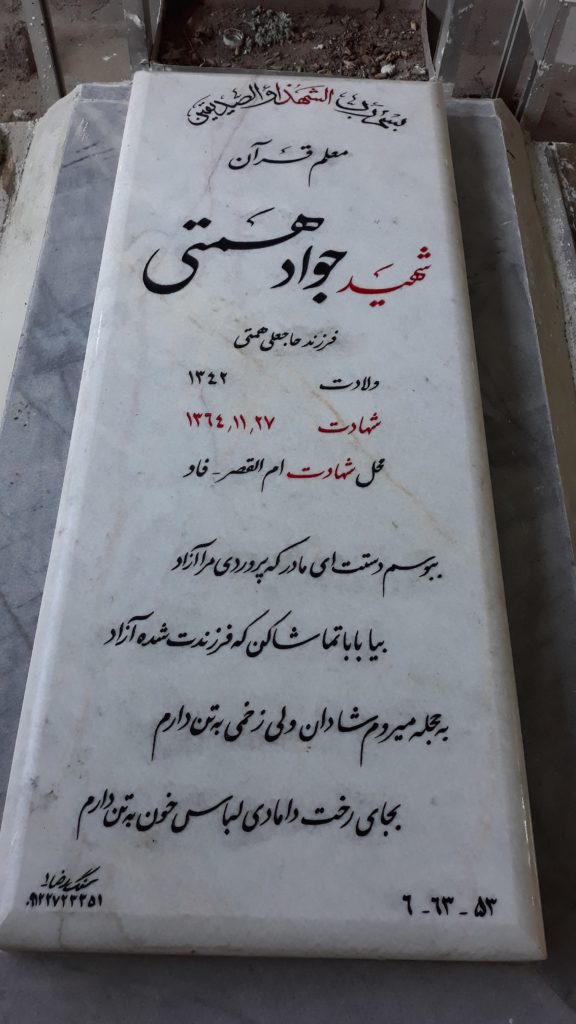 بسم رب الشهداء و الصدیقین
معلم قرآن
شهید جواد همتی
فرزند حاجعلی همتی
ولادت ۱۳۴۲
شهادت ۱۳۶۴٫۱۱٫۲۷
محل شهادت ام القصر - فاو
ببوسم دستت ای مادر که پروردی مرا آزاد
بیا بابا تماشا کن که فرزندت شده آزاد
به حجله میروم شادان ولی زخمی به تن دارم
بجای رخت دامادی لباس خون به تن دارم
۵۳ - ۶۳ - ۶
۰۹۱۲۲۷۲۳۳۵۱